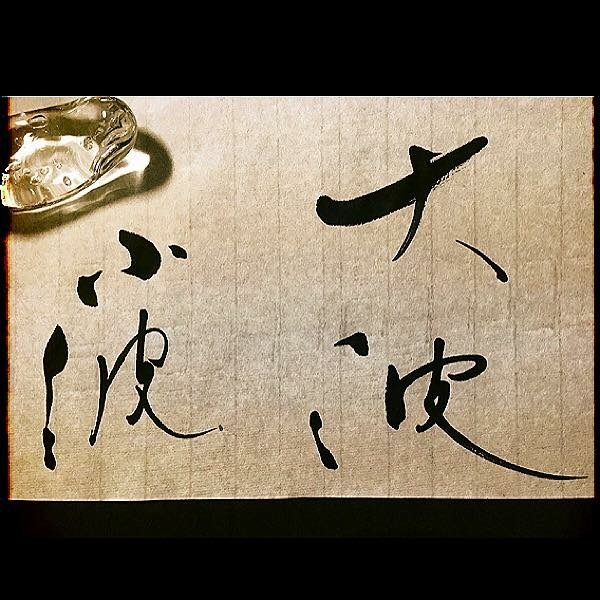 大波
小波